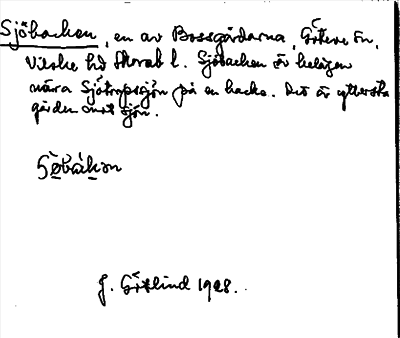 Sjöbacken, en av Bossgårdarna, Götene sn,
Vilske hd Skarab l. Sjöbacken är belägen
nära Sjötorpssjön på en backe. Det är yttersta
gården mot sjön.
J. Götlind 1928.